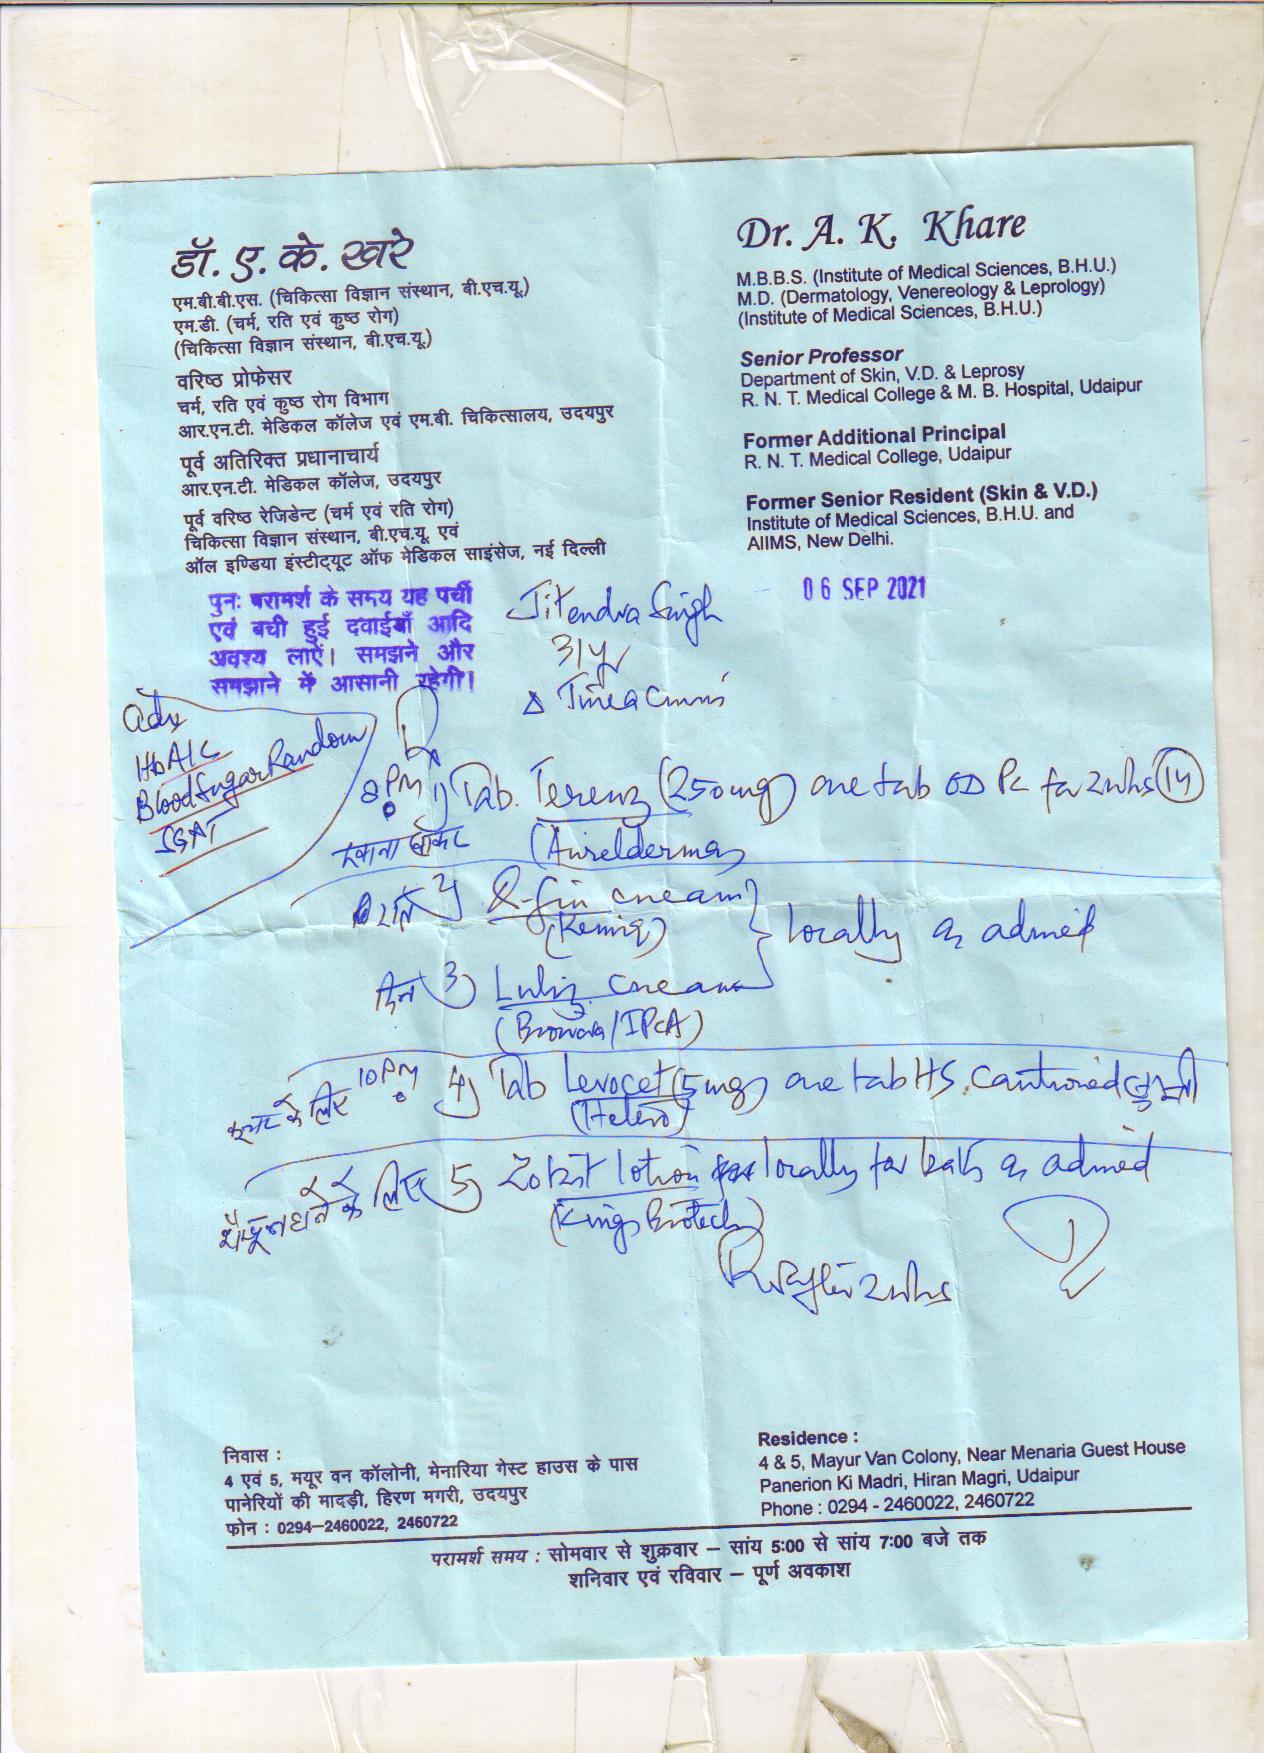 डॉ. ए. के. खरे
एम.बी.बी.एस. (चिकित्सा विज्ञान संस्थान, बी.एच.यू.)
एम.डी. (चर्म, रति एवं कुष्ठ रोग)
(चिकित्सा विज्ञान संस्थान, बी.एच.यू.)
वरिष्ठ प्रोफेसर
चर्म, रति एवं कुष्ठ रोग विभाग
आर.एन.टी. मेडिकल कॉलेज एवं एम.बी. चिकित्सालय, उदयपुर
पूर्व अतिरिक्त प्रधानाचार्य
आर.एन.टी. मेडिकल कॉलेज, उदयपुर
पूर्व वरिष्ठ रेजिडेन्ट (चर्म एवं रति रोग)
चिकित्सा विज्ञान संस्थान, बी.एच.यू. एवं
ऑल इण्डिया इंस्टीट्यूट ऑफ मेडिकल साइंसेज, नई दिल्ली
Dr. A. K. Khare
M.B.B.S. (Institute of Medical Sciences, B.H.U.)
M.D. (Dermatology, Venereology & Leprology)
(Institute of Medical Sciences, B.H.U.)
Senior Professor
Department of Skin, V.D. & Leprosy
R. N. T. Medical College & M. B. Hospital, Udaipur
Former Additional Principal
R. N. T. Medical College, Udaipur
Former Senior Resident (Skin & V.D.)
Institute of Medical Sciences, B.H.U. and
AIIMS, New Delhi.
पुनः परामर्श के समय यह पर्ची
एवं बची हुई दवाईयाँ आदि
अवश्य लाऐं। समझने और
समझाने में आसानी रहेगी।
06 SEP 2021
Jitendra Singh
31y
Δ Tinea Cruris
Adv
HbA1C
Blood Sugar Random
SGPT
8 PM 1) Tab. Terenz (250mg) one tab OD PC for 2 whs (14)
खाना खाकर (Aurelderma)
रात 2) cream
} locally as advised
दिन 3) Luliz cream
(Brown/IPCA)
के लिए 10 PM 4) Tab Levocet (5mg) one tab HS. Cautioned सुस्ती
(Hetero)
के लिए 5) lotion locally for bath as advised
(Kings Biotech)
2 whs
निवास :
4 एवं 5, मयूर वन कॉलोनी, मेनारिया गेस्ट हाउस के पास
पानेरियों की मादड़ी, हिरण मगरी, उदयपुर
फोन : 0294–2460022, 2460722
Residence :
4 & 5, Mayur Van Colony, Near Menaria Guest House
Panerion Ki Madri, Hiran Magri, Udaipur
Phone : 0294 - 2460022, 2460722
परामर्श समय : सोमवार से शुक्रवार – सांय 5:00 से सांय 7:00 बजे तक
शनिवार एवं रविवार – पूर्ण अवकाश